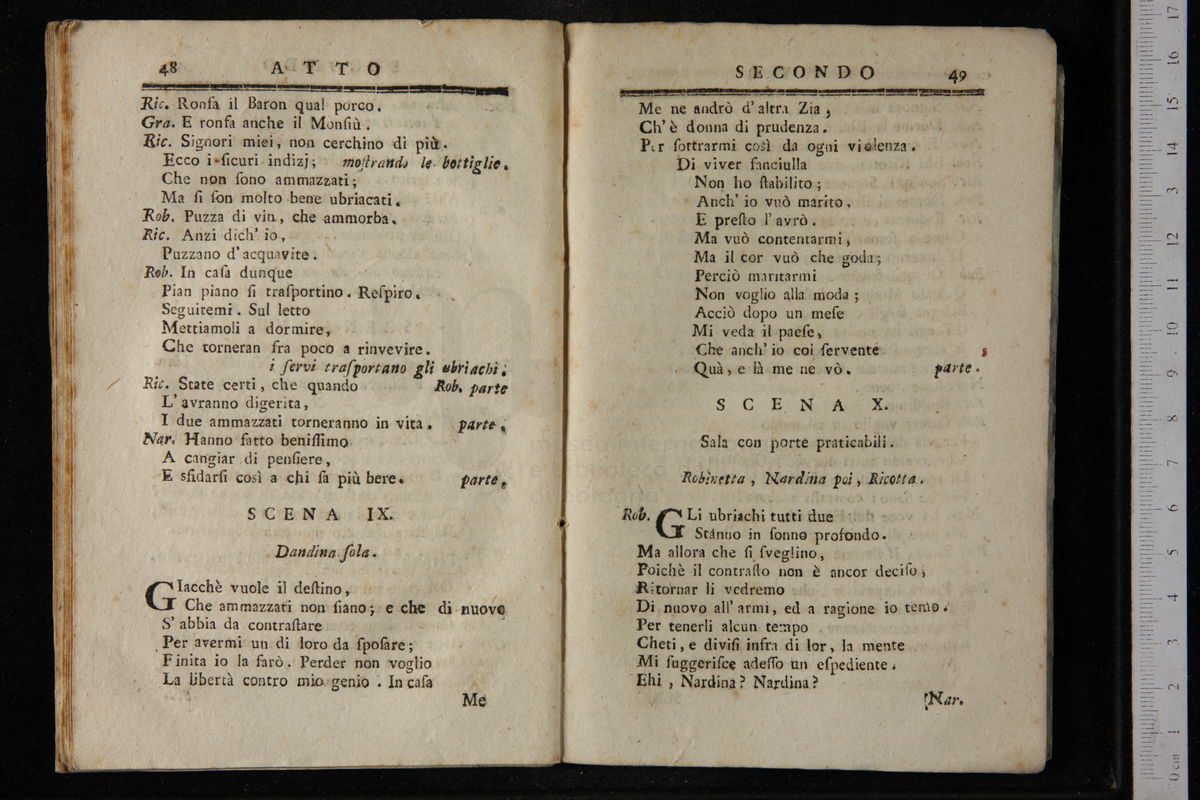 48 ATTO
Ric. Ronſa il Baron qual porco.
Gra. E ronfa anche il Monſiù.
Ric. Signori miei, non cerchino di più.
Ecco i ſicuri indizj; moſtrando le bottiglie.
Che non ſono ammazzati;
Ma ſi ſon molto bene ubriacati.
Rob. Puzza di vin, che ammorba.
Ric. Anzi dich' io,
Puzzano d'acquavite.
Rob. In caſa dunque
Pian piano ſi traſportino. Reſpiro.
Seguitemi. Sul letto
Mettiamoli a dormire,
Che torneran fra poco a rinvevire.
i ſervi traſportano gli ubriachi.
Ric. State certi, che quando Rob. parte
L'avranno digerita,
I due ammazzati torneranno in vita. parte.
Nar. Hanno fatto beniſſimo
A cangiar di penſiere,
E sfidarſi così a chi ſa più bere. parte.
SCENA IX.
Dandina ſola.
GIacchè vuole il deſtino,
Che ammazzati non ſiano; e che di nuovo
S'abbia da contraſtare
Per avermi un di loro da ſpoſare;
Finita io la farò. Perder non voglio
La libertà contro mio genio. In caſa
Me
SECONDO 49
Me ne andrò d'altra Zia,
Ch'è donna di prudenza.
Per ſottrarmi così da ogni violenza.
Di viver fanciulla
Non ho ſtabilito;
Anch' io vuò marito,
E preſto l'avrò.
Ma vuò contentarmi,
Ma il cor vuò che goda;
Perciò maritarmi
Non voglio alla moda;
Acciò dopo un meſe
Mi veda il paeſe,
Che anch' io coi ſervente
Quà, e là me ne vò. parte.
SCENA X.
Sala con porte praticabili.
Robinetta, Nardina poi, Ricotta.
Rob. GLi ubriachi tutti due
Stanno in ſonno profondo.
Ma allora che ſi ſveglino,
Poichè il contraſto non è ancor deciſo,
Ritornar li vedremo
Di nuovo all' armi, ed a ragione io temo.
Per tenerli alcun tempo
Cheti, e diviſi infra di lor, la mente
Mi ſuggeriſce adeſſo un eſpediente.
Ehi, Nardina? Nardina?
Nar.
17
16
15
14
13
12
11
10
9
8
7
6
5
4
3
2
1
0 cm